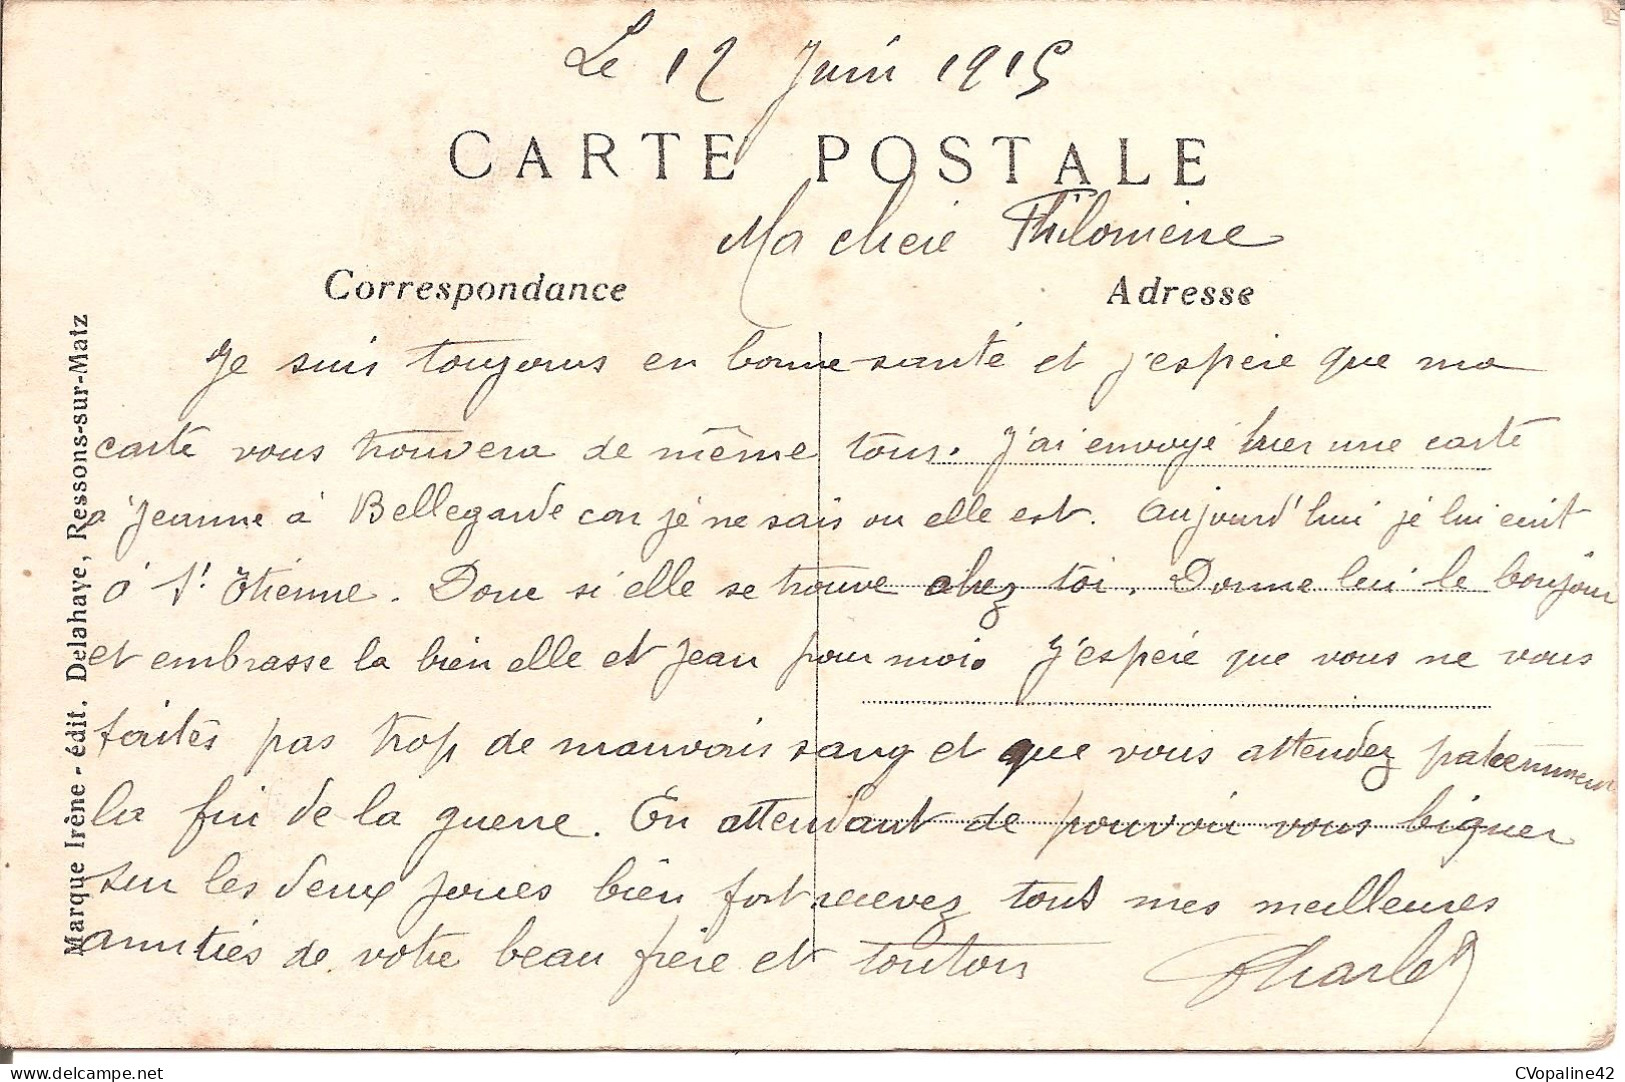 Le 12 Juin 1915
CARTE POSTALE
Ma chère Philomène
Correspondance
Adresse
Je suis toujours en bonne santé et j'espère que ma
carte vous trouvera de même tous. J'ai envoyé hier une carte
à Jeanne à Bellegarde car je ne sais ou elle est. Aujourd'hui je lui écrit
à St Etienne. Donc si elle se trouve chez toi. Donne lui le bonjour
et embrasse la bien elle et Jean pour moi. J'espère que vous ne vous
faites pas trop de mauvais sang et que vous attendez patiemment
la fin de la guerre. En attendant de pouvoir vous biquer
sur les deux joues bien fort recevez tous mes meilleures
amitiés de votre beau frère et tonton
Charles
Marque Irène - édit. Delahaye, Ressons-sur-Matz
delcampe.net
CVopaline42